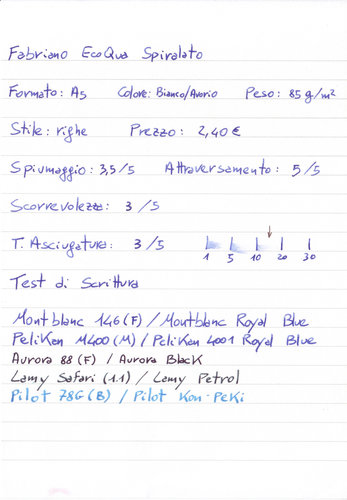 Fabriano EcoQua Spiralato
Formato: A5 Colore: Bianco/Avorio Peso: 85 g/m²
Stile: righe Prezzo: 2,40 €
Spiumaggio: 3,5/5 Attraversamento: 5/5
Scorrevolezza: 3/5
T. Asciugatura: 3/5
1 5 10 20 30
Test di Scrittura
Montblanc 146 (F) / Montblanc Royal Blue
Pelikan M400 (M) / Pelikan 4001 Royal Blue
Aurora 88 (F) / Aurora Black
Lamy Safari (1.1) / Lamy Petrol
Pilot 78G (B) / Pilot Kon-Peki